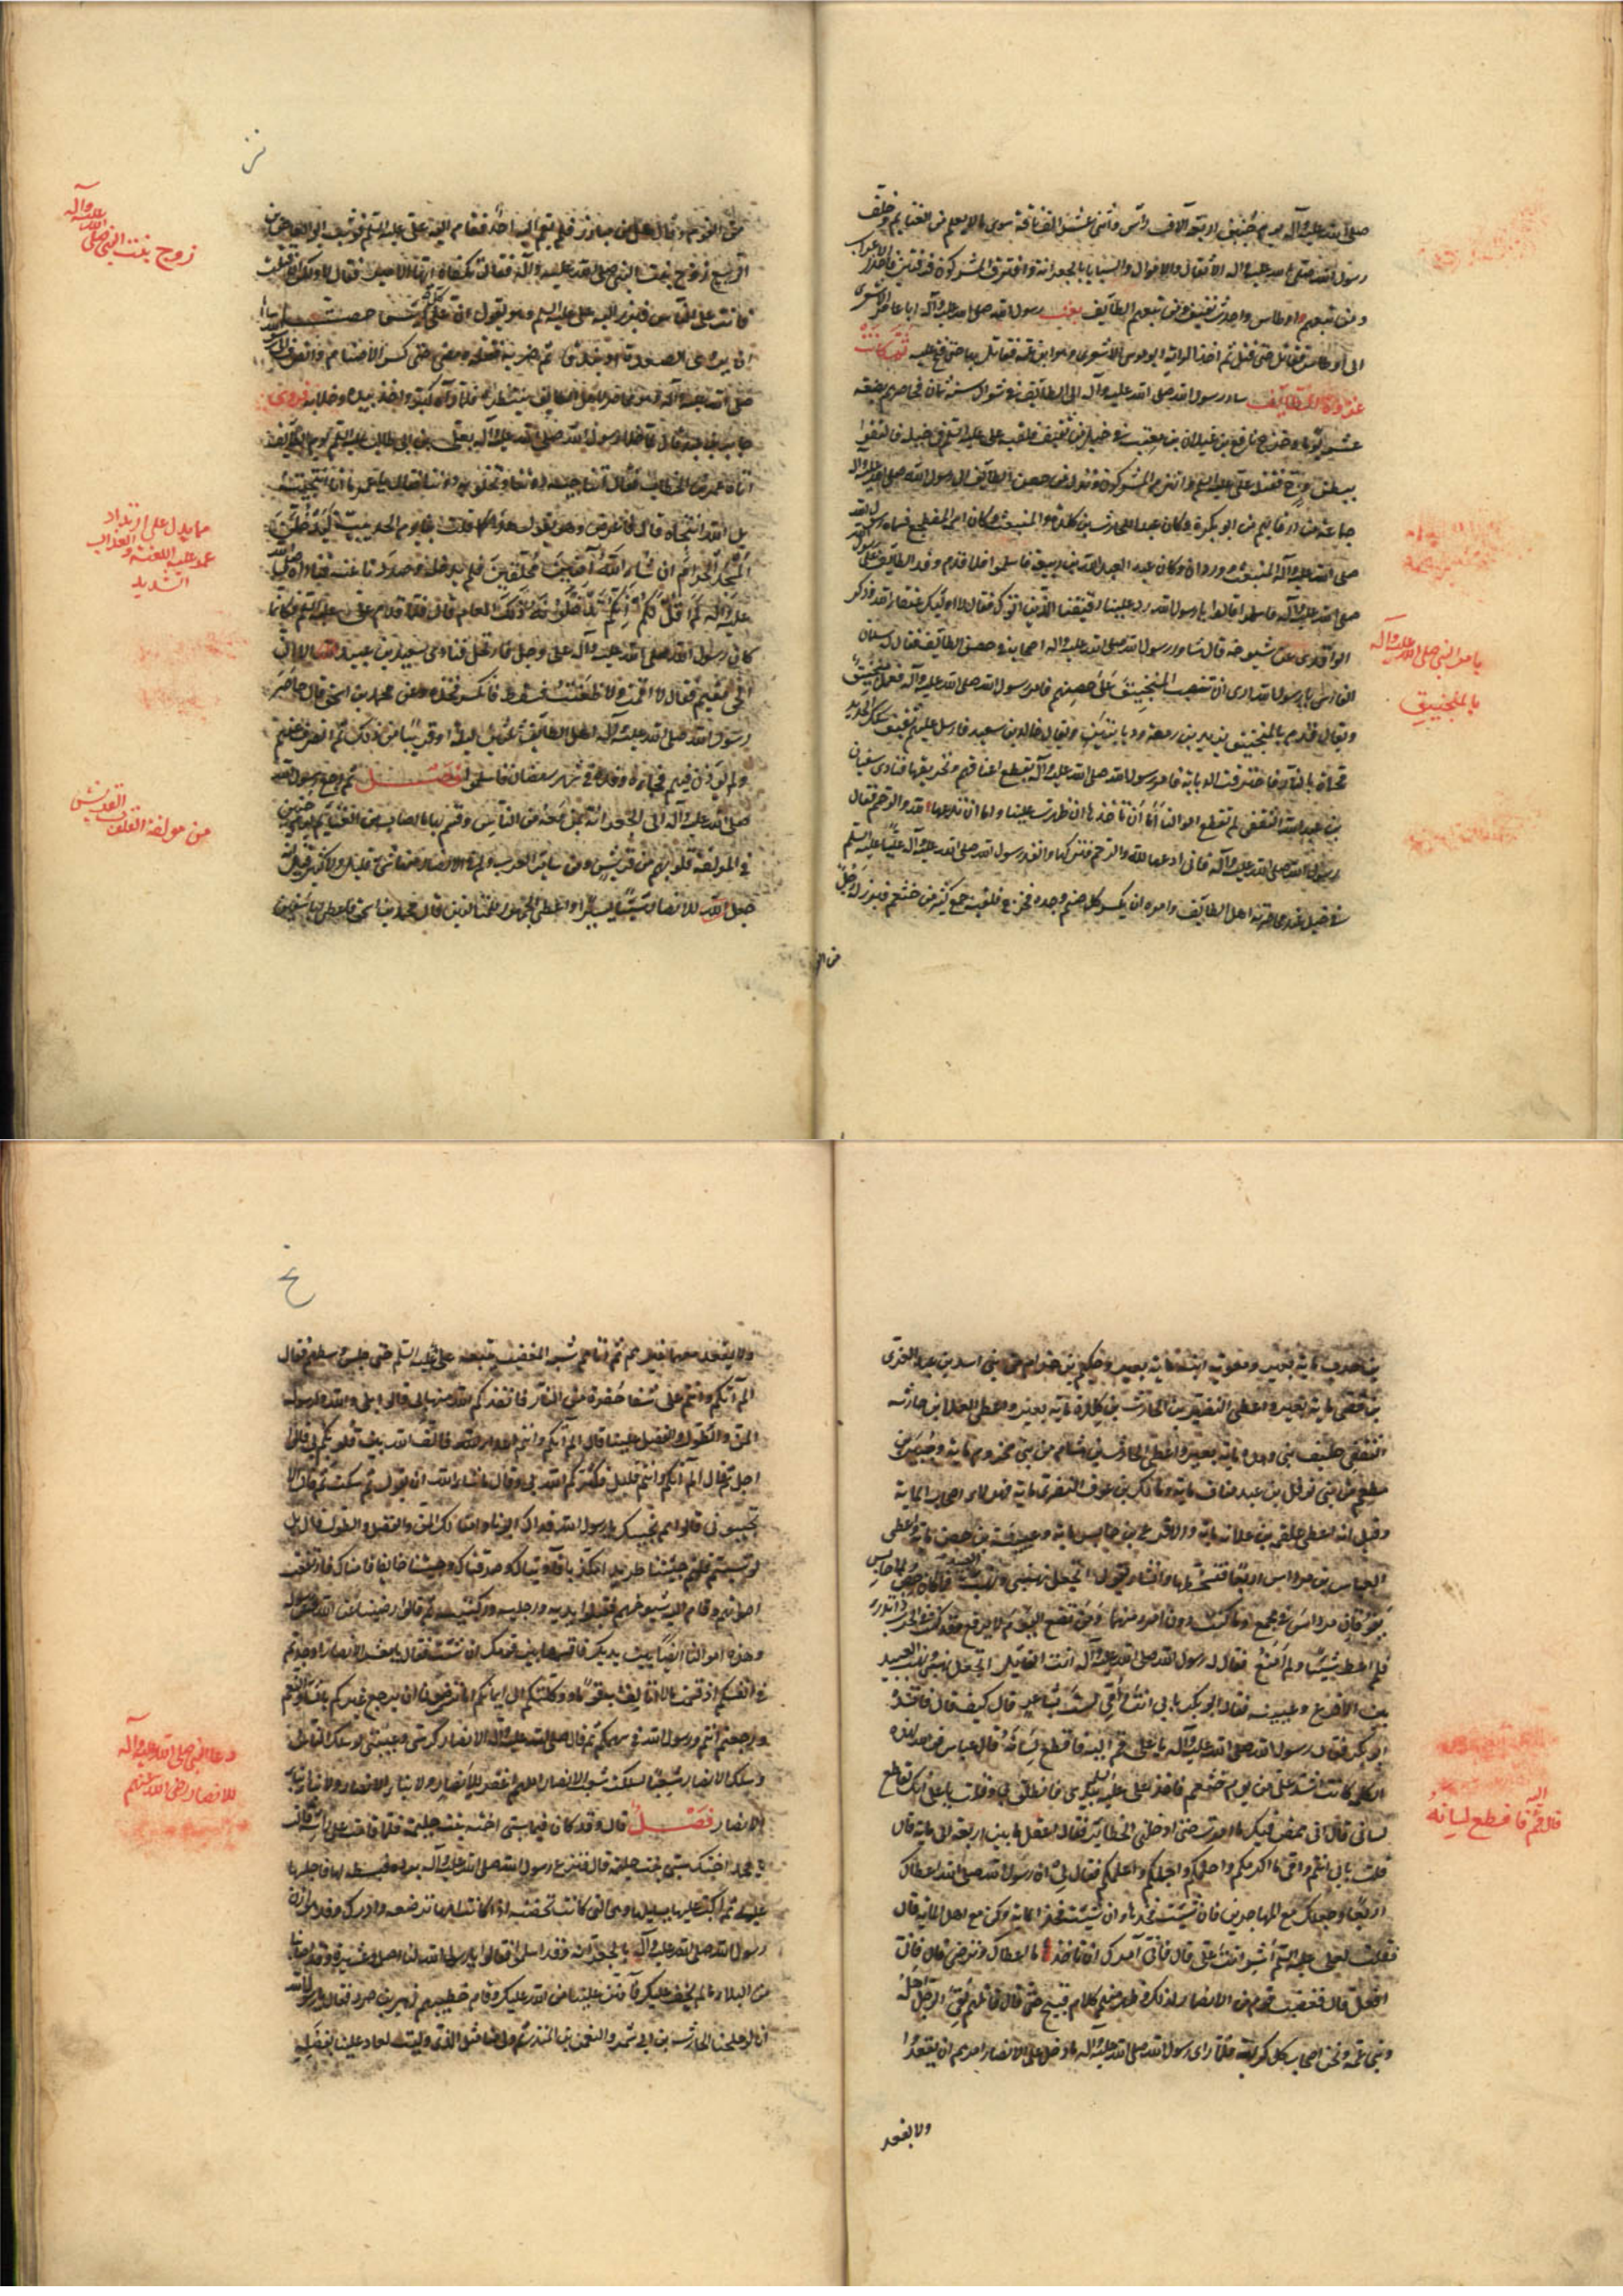 صلى الله عليه وآله يوم حنين اربعة آلاف رأس واثنى عشر الف ناقة سوى ما لا يعلم من الغنايم وخلف
رسول الله صلى الله عليه وآله الأنفال والاموال والسبايا بالجعرانة وافترق المشركون فرقتين فاخذ الاعراب
ومن تبعهم اوطاس واخذت ثقيف ومن تبعهم الطايف بعث رسول الله صلى الله عليه وآله ابا عامر الاشعرى
الى اوطاس فقاتل حتى قتل ثم اخذ الراية ابو موسى الاشعرى وهو ابن عمه فقاتل بها حتى فتح عليه ثم كانت
غزوة الطايف سار رسول الله صلى الله عليه وآله الى الطايف فى شوال سنة ثمان فحاصرهم بضعة
عشر يوما وخرج نافع بن غيلان بن معتب فى خيل من ثقيف فلقيه على عليه السلم فى خيله فالتقوا
ببطن وج فقتله على عليه السلم وانهزم المشركون ونزل من حصن الطايف الى رسول الله صلى الله عليه وآله
جماعة من ارقائهم منهم ابو بكرة وكان عبدا للحارث بن كلدة والمنبعث وكان اسمه المضطجع فسماه رسول الله
صلى الله عليه وآله المنبعث ووردان وكان عبدا لعبد الله بن ربيعة فاسلموا فلما قدم وفد الطايف على رسول الله
صلى الله عليه وآله فاسلموا قالوا يا رسول الله رد علينا رقيقنا الذين اتوك فقال لا اوليك عتقاء الله وذكر
الواقدى عن شيوخه قال شاور رسول الله صلى الله عليه وآله اصحابه فى حصن الطايف فقال له سلمان
الفارسى يا رسول الله ارى ان تنصب المنجنيق على حصنهم فامر رسول الله صلى الله عليه وآله فعمل منجنيق
ويقال قدم بالمنجنيق يزيد بن زمعة ودبابتين ويقال خالد بن سعيد فارسل عليهم ثقيف سكك الحديد
محماة بالنار فاحترقت الدبابة فامر رسول الله صلى الله عليه وآله بقطع اعنابهم وتحريقها فنادى سفيان
بن عبد الله الثقفى لم تقطع اموالنا اما ان تأخذها ان ظهرت علينا واما ان تدعها لله والرحم فقال
رسول الله صلى الله عليه وآله فانى ادعها لله والرحم فتركها وانفذ رسول الله صلى الله عليه وآله عليا عليه السلم
فى خيل عند محاصرته اهل الطايف وامره ان يكسر كل صنم وجده فخرج فلقيه جمع كثير من خثعم فبرز له رجل
من القوم
يا من النبى صلى الله عليه وآله
بالمنجنيق
من القوم وقال هل من مبارز فلم يقم اليه احد فقام اليه على عليه السلم فوثب ابو العاص بن
الربيع زوج بنت النبى صلى الله عليه وآله فقال تكفاه ايها الامير فقال لا ولكن ان قتلت
فانت على الناس فبرز اليه على عليه السلم وهو يقول ان على كل رئيس حقا
ان يروى الصعدة او تندقا ثم ضربه فقتله ومضى حتى كسر الاصنام وانصرف الى رسول الله
صلى الله عليه وآله وهو محاصر لاهل الطايف ينتظره فلما رآه كبر واخذ بيده وخلا به فروى
جابر بن عبد الله قال لما خلا رسول الله صلى الله عليه وآله بعلى بن ابى طالب عليه السلم يوم الطايف
اتاه عمر بن الخطاب فقال اتناجيه دوننا وتخلو به دوننا فقال يا عمر ما انا انتجيته
بل الله انتجاه قال فاعرض وهو يقول هذا كما قلت لنا يوم الحديبية لتدخلن
المسجد الحرام ان شاء الله آمنين محلقين فلم ندخله وصددنا عنه فناداه صلى الله
عليه وآله لم اقل لكم انكم تدخلونه ذلك العام قال فلما قدم على عليه السلم فكانما
كان رسول الله صلى الله عليه وآله على وجل فارتحل فنادى سعيد بن عبيد الا ان
الحى مقيم فقال لا اقمت ولا ظعنت فسقط فانكسر فخذه وعن محمد بن اسحق قال حاصر
رسول الله صلى الله عليه وآله اهل الطايف ثلثين ليلة او قريبا من ذلك ثم انصرف عنهم
ولم يؤذن فيهم فجاءه وفده فى شهر رمضان فاسلموا فصل ثم رجع رسول الله
صلى الله عليه وآله الى الجعرانة بمن معه من الناس وقسم بها ما اصاب من الغنايم يوم حنين
فى المؤلفة قلوبهم من قريش ومن ساير العرب ولم يكن فى الانصار منها شىء قليل ولا كثير قيل انه
جعل للانصار شيئا يسيرا واعطى الجمهور للمتالفين قال محمد بن اسحق فاعطى ابا سفين
زوج بنت النبى صلى الله عليه وآله
ما يدل على ارتداد
عمر عليه اللعنة والعذاب
الشديد
من مؤلفة القلوب القريش
بن حرب ماية بعير ومعوية ابنه ماية بعير وحكيم بن حزام من بنى اسد بن عبد العزى
بن قصى ماية بعير واعطى النضير بن الحارث بن كلدة ماية بعير واعطى العلا بن حارثة
الثقفى حليف بنى زهرة ماية بعير واعطى الحارث بن هشام من بنى مخزوم ماية وجبير بن
مطعم من بنى نوفل بن عبد مناف ماية ومالك بن عوف النصرى ماية فهؤلاء اصحاب الماية
وقيل انه اعطى علقمة بن علاثة ماية والاقرع بن حابس ماية وعيينة بن حصن ماية واعطى
العباس بن مرداس اربعا فتسخطها وانشاء يقول اتجعل نهبى ونهب العبيد فما كان حصن ولا حابس
يفوقان مرداس فى مجمع وما كنت دون امرء منهما ومن تضع اليوم لا يرفع وقد كنت فى الحرب ذا تدرء
فلم اعط شيئا ولم امنع فقال له رسول الله صلى الله عليه وآله انت القائل اتجعل نهبى ونهب العبيد
بين الاقرع وعيينة فقال ابو بكر بابى انت وامى لست بشاعر قال كيف قال فانشده
ابو بكر فقال رسول الله صلى الله عليه وآله يا على قم اليه فاقطع لسانه قال عباس فو الله لهذه
الكلمة كانت اشد على من يوم خثعم فاخذ على عليه السلم بيدى فانطلق بى وقلت يا على انك لقاطع
لسانى قال انى ممض فيك ما امرت حتى ادخلنى الحظاير فقال اعقل ما بين اربعة الى ماية قال
قلت بابى انتم وامى ما اكرمكم واحلمكم واجملكم واعلمكم فقال لى ان رسول الله صلى الله اعطاك
اربعا وجعلك مع المهاجرين فان شيت فخذها وان شيت فخذ الماية وكن مع اهل الماية قال
فقلت لعلى عليه السلم اشر انت على قال فانى آمرك ان تاخذ ما اعطاك وترضى قال فانى
افعل قال فغضب قوم من الانصار لذلك وظهر منهم كلام قبيح حتى قال قائلهم لقى الرجل اهله
وبنى عمه ونحن اصحاب كل كريهة فلما رأى رسول الله صلى الله عليه وآله ما دخل على الانصار امرهم ان يقعدوا
ولا يقعد
قال قم اليه فاقطع لسانه
ولا يقعد معهم غيرهم ثم اتاهم شبه المغضب يتبعه على عليه السلم حتى جلس وسطهم فقال
الم آتكم وانتم على شفا حفرة من النار فانقذكم الله منها بى قالوا بلى ولله ولرسوله
المن والطول والفضل علينا قال الم آتكم وانتم اعداء فالف الله بين قلوبكم بى قالوا
اجل ثم قال الم آتكم وانتم قليل فكثركم الله بى وقال ما شاء الله ان يقول ثم سكت ثم قال الا
تجيبونى قالوا بم نجيبك يا رسول الله فداك ابونا وامنا لك المن والفضل والطول قال بل
لو شيتم قلتم جيتنا طريدا مكذبا فآويناك وصدقناك وجيتنا خايفا فامناك فارتفعت
اصواتهم وقام اليه شيوخهم فقبلوا يديه ورجليه وركبتيه ثم قالوا رضينا عن الله وعن رسوله
وهذه اموالنا ايضا بين يديك فاقسمها بين قومك ان شئت فقال يا معشر الانصار اوجدتم
فى انفسكم اذ قسمت مالا اتألف به قوما ووكلتكم الى ايمانكم اما ترضون ان يرجع غيركم بالشاء والنعم
ورجعتم انتم ورسول الله فى سهمكم ثم قال صلى الله عليه وآله الانصار كرشى وعيبتى لو سلك الناس
وسلك الانصار شعبا لسلكت شعب الانصار اللهم اغفر للانصار ولابناء الانصار ولابناء ابناء
الانصار فصل قال وقد كان فيما سبى اخته بنت حليمة فلما قامت على راسه قالت
يا محمد اختك سبى بنت حليمة قال فنزع رسول الله صلى الله عليه وآله برده فبسطه لها فاجلسها
عليه ثم اكب عليها يسائلها وهى التى كانت تحضنه اذا كانت امها ترضعه وادرك وفد هوازن
رسول الله صلى الله عليه وآله بالجعرانة وقد اسلموا فقالوا يا رسول الله لنا اصل وعشيرة وقد اصابنا
من البلاء ما لم يخف عليك فامنن علينا من الله عليك وقام خطيبهم زهير بن صرد فقال يا رسول الله
انا لو ملحنا الحارث بن ابى شمر والنعمن بن المنذر ثم ولى منا مثل الذى وليت لعاد علينا بفضله
دعا النبى صلى الله عليه وآله
للانصار رضى الله عنهم